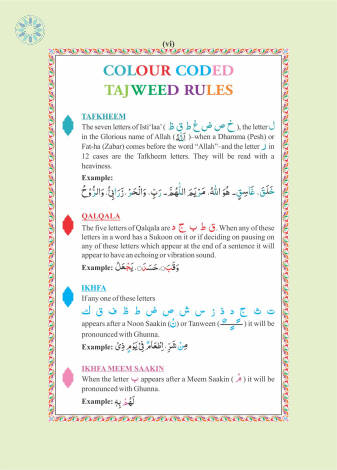 (vi)
COLOUR CODED
TAJWEED RULES
TAFKHEEM
The seven letters of Isti'laa' ( خ ص ض غ ط ق ظ ), the letter ل
in the Glorious name of Allah ( اللّٰهُ )–when a Dhamma (Pesh) or
Fat-ha (Zabar) comes before the word "Allah"–and the letter ر in
12 cases are the Tafkheem letters. They will be read with a
heaviness.
Example:
خَلَقَ، غَاسِقٍ، هُوَ اللّٰهُ، مَرْيَمَ اللّٰهُمَّ، رَبِّ، وَانْحَرْ، زَرَابِيُّ، وَالرُّوْحُ
QALQALA
The five letters of Qalqala are ق ط ب ج د. When any of these
letters in a word has a Sukoon on it or if deciding on pausing on
any of these letters which appear at the end of a sentence it will
appear to have an echoing or vibration sound.
Example: وَقَبَ، حَسَدَ، يَجْعَلُ
IKHFA
If any one of these letters
ت ث ج د ذ ز س ش ص ض ط ظ ف ق ك
appears after a Noon Saakin (نْ) or Tanween ( ) it will be
pronounced with Ghunna.
Example: مِنْ شَرِّ، اِطْعَامٌ فِيْ يَوْمٍ ذِيْ
IKHFA MEEM SAAKIN
When the letter ب appears after a Meem Saakin ( مْ ) it will be
pronounced with Ghunna.
Example: لَهُمْ بِهٖ